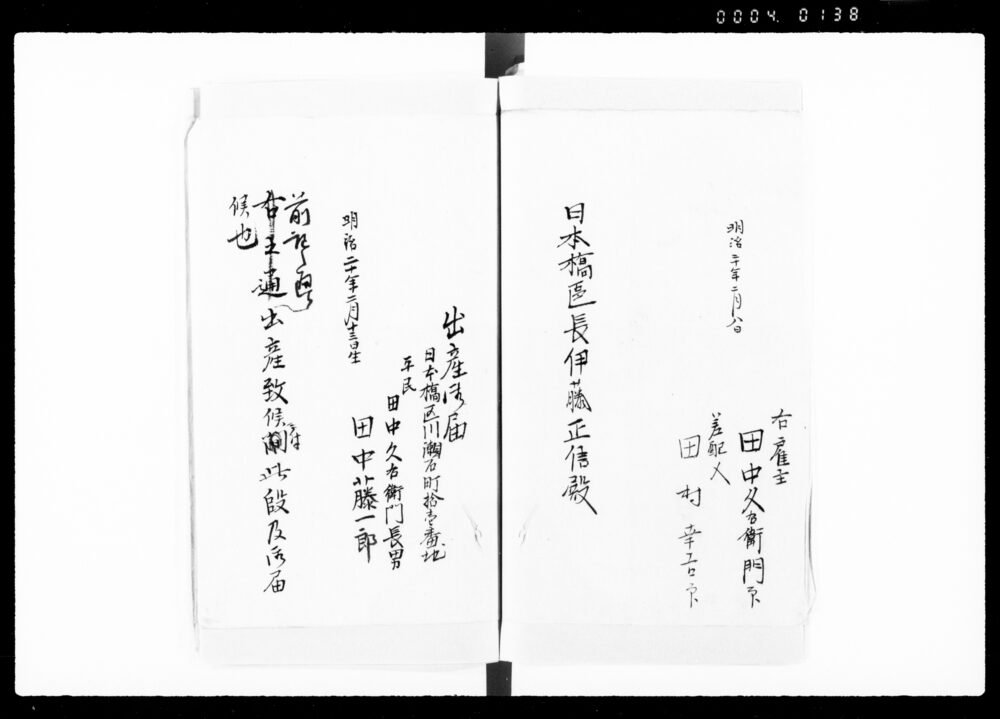 0004 0138
右雇主
田中久右衛門印
差配人
田村幸吉印
明治二十年二月八日
日本橋區長伊藤正信殿
出産御届
日本橋区川瀬石町拾壱番地
平民
田中久右衛門長男
田中藤一郎
明治二十年二月十三日生
前記之
右之通出産致候間此段及御届
候也